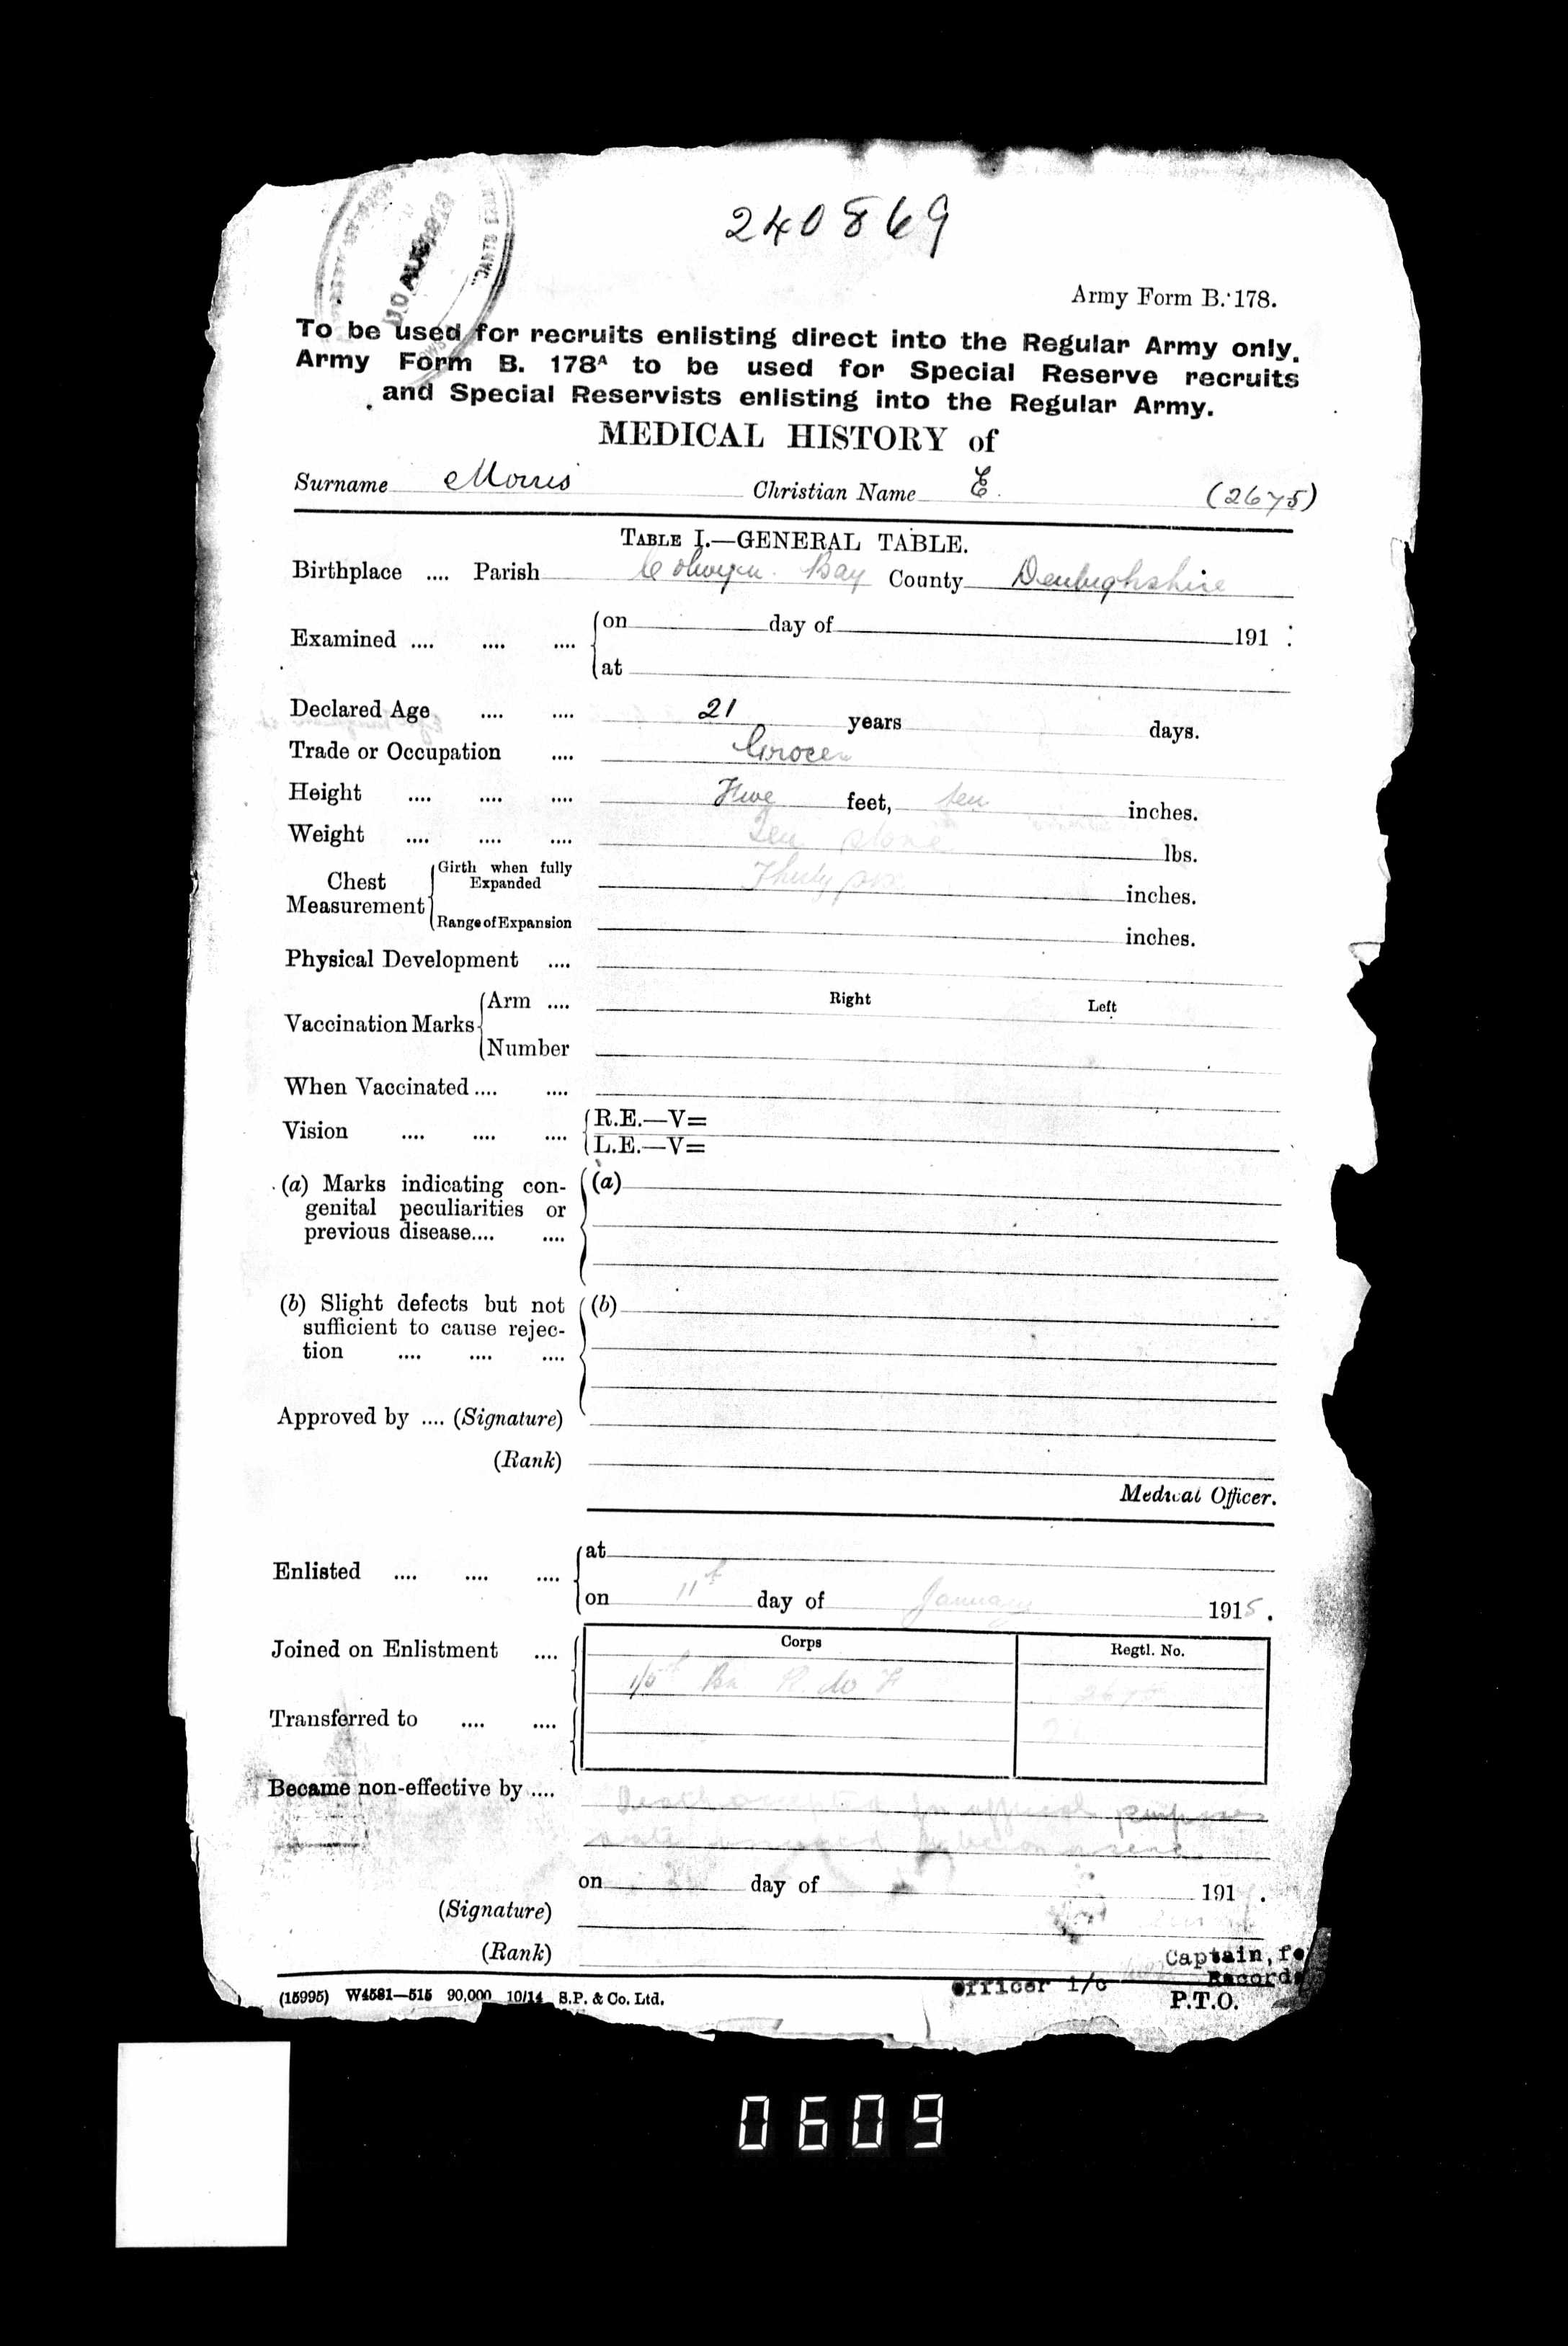 10 AUG 1920
240869
Army Form B. 178.
To be used for recruits enlisting direct into the Regular Army only.
Army Form B. 178A to be used for Special Reserve recruits
and Special Reservists enlisting into the Regular Army.
MEDICAL HISTORY of
Surname Morris Christian Name E. (2675)
TABLE I.—GENERAL TABLE.
Birthplace .... Parish Colwyn Bay County Denbighshire
Examined .... .... .... on day of 191
at
Declared Age .... .... 21 years days.
Trade or Occupation .... Grocer
Height .... .... .... Five feet, ten inches.
Weight .... .... .... Ten stone lbs.
Chest Measurement Girth when fully Expanded Thirty six inches.
Range of Expansion inches.
Physical Development ....
Vaccination Marks Arm .... Right Left
Number
When Vaccinated .... ....
Vision .... .... .... R.E.—V=
L.E.—V=
(a) Marks indicating con- (a)
genital peculiarities or
previous disease.... ....
(b) Slight defects but not (b)
sufficient to cause rejec-
tion .... .... ....
Approved by .... (Signature)
(Rank)
Medical Officer.
Enlisted .... .... .... at
on 11th day of January 1915.
Joined on Enlistment .... Corps Regtl. No.
1/5th Bn R. W F 2675
Transferred to .... ....
Became non-effective by .... Death accepted for official purposes
on day of 191 .
(Signature)
(Rank) Captain, fo
Officer i/c Records
(15995) W4581—515 90,000 10/14 S.P. & Co. Ltd. P.T.O.
0609